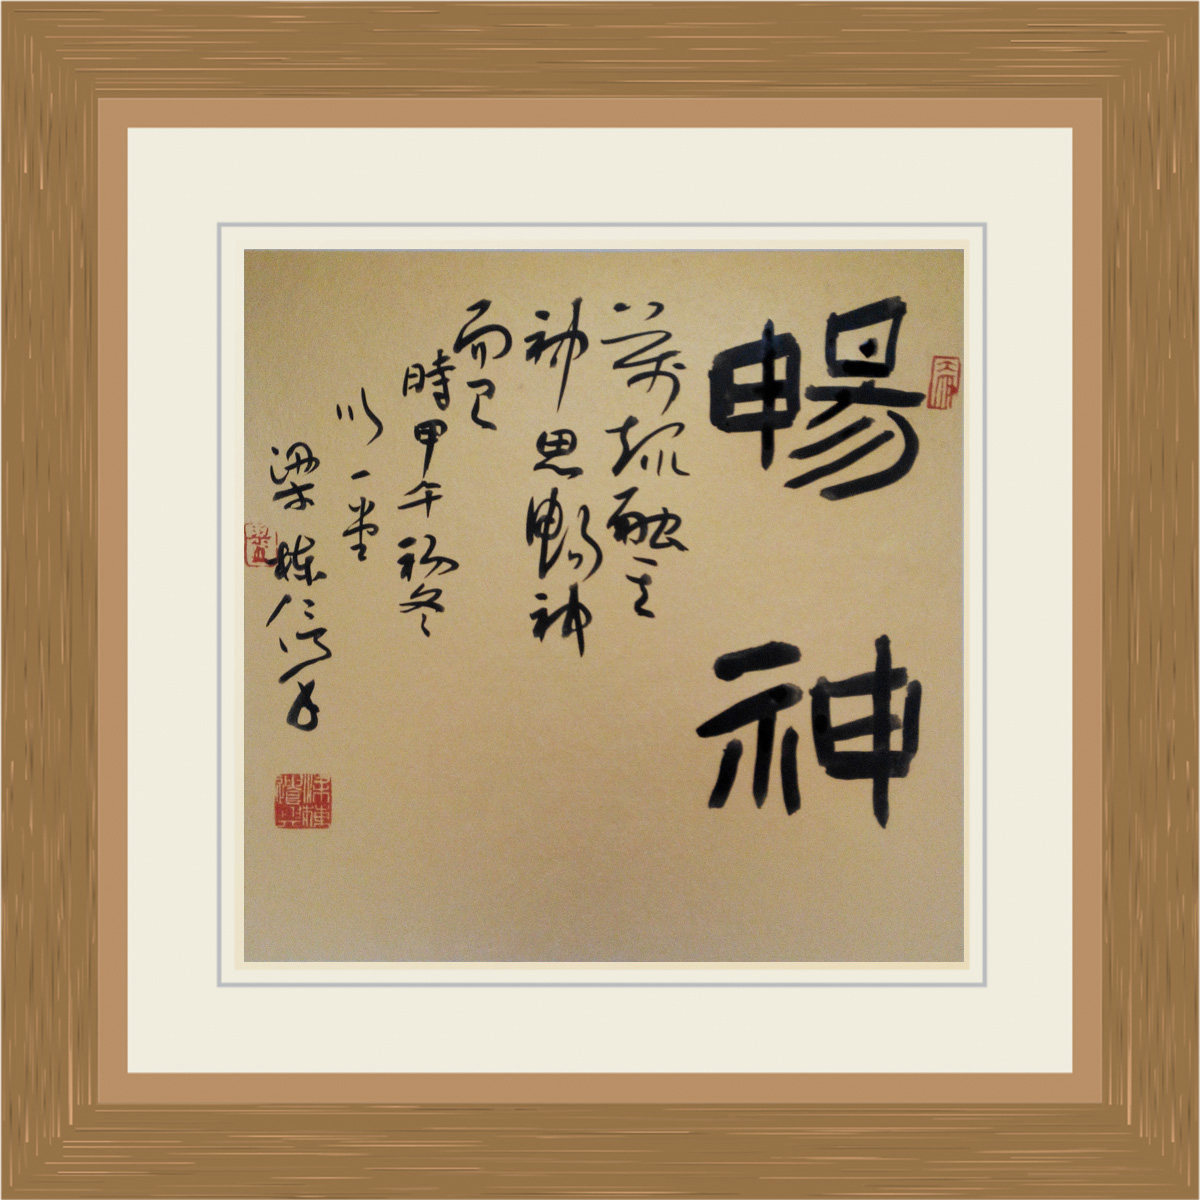 暢神
萬趣融其
神思暢神
而已
時甲午初冬
川一堂
梁棟信筆